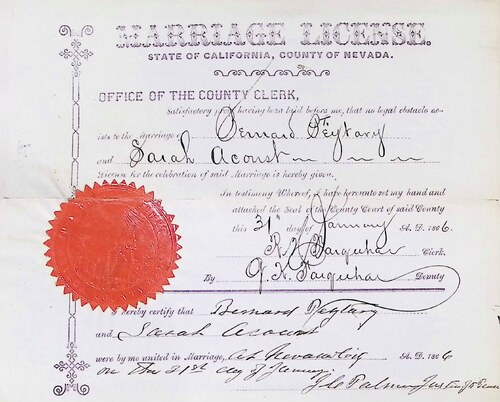 MARRIAGE LICENSE.
STATE OF CALIFORNIA, COUNTY OF NEVADA.
OFFICE OF THE COUNTY CLERK,
Satisfactory proof having been laid before me, that no legal obstacle ex-
ists to the marriage of Bernard Teytary
and Sarah Acoust
License for the celebration of said Marriage is hereby given.
In testimony Whereof, I have hereunto set my hand and
attached the Seal of the County Court of said County
this 31st day of January A. D. 1866.
R. H. Farquhar Clerk.
By J. H. Farquhar Deputy
I hereby certify that Bernard Teytary
and Sarah Acoust
were by me united in Marriage, at Nevada City A. D. 1866
on the 31st day of January
Palmer Justice of Peace